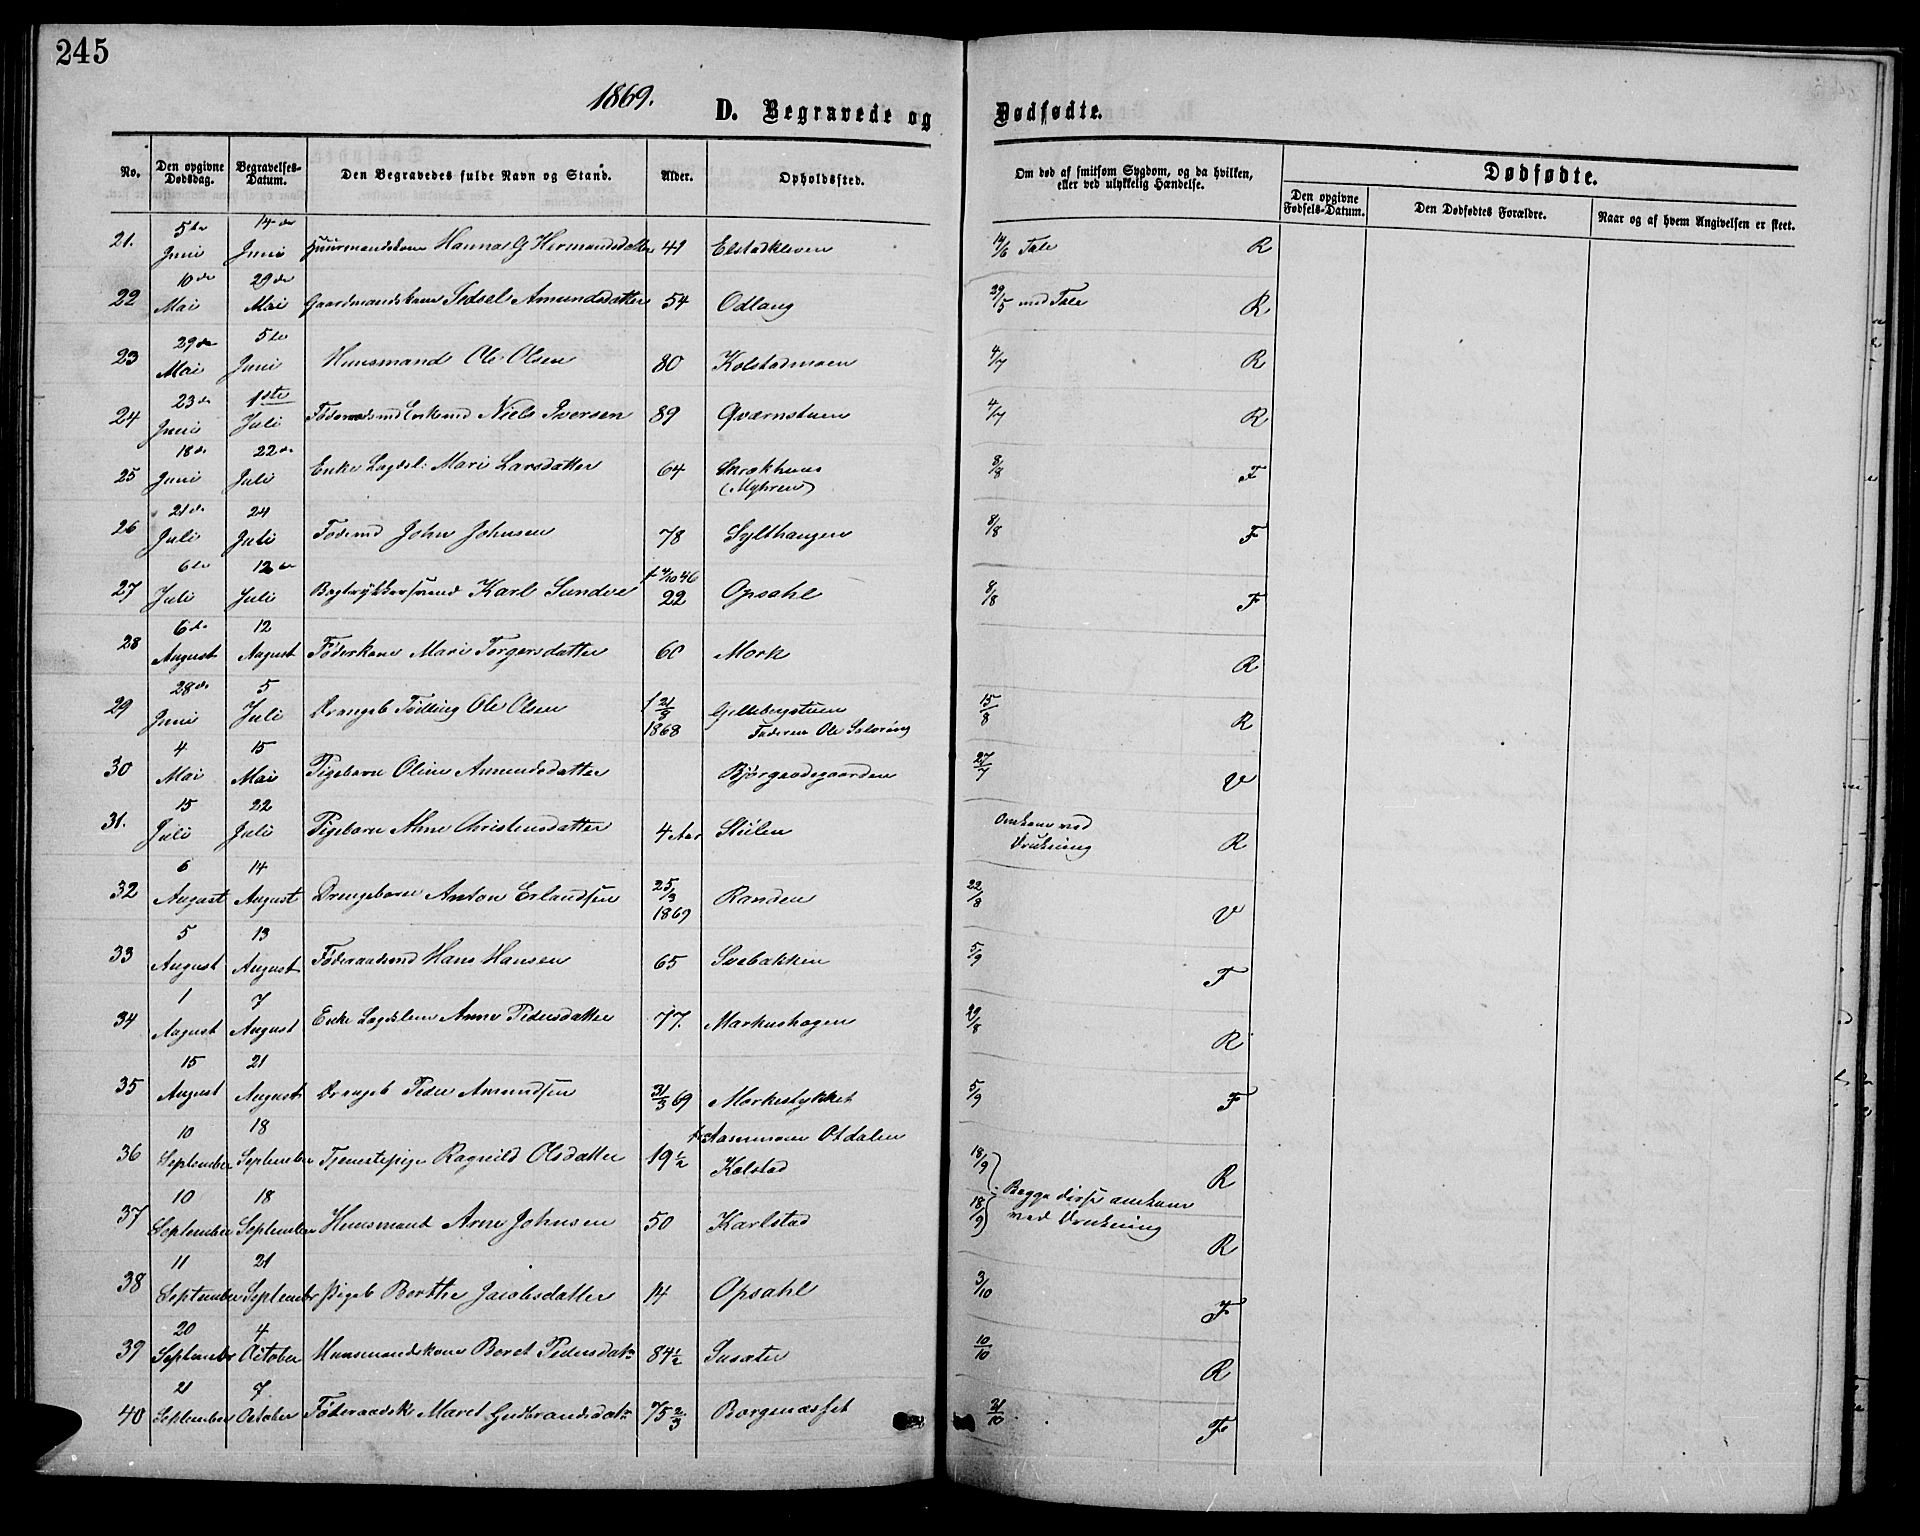 245
1869.
D. Begravede og Dødfødte.
No. Den opgivne Dødsdag. Begravelses-Datum. Den Begravedes fulde Navn og Stand. Alder. Opholdssted. Om død af smitsom Sygdom, og da hvilken, eller ved ulykkelig Hændelse. Dødfødte.
Den opgivne Fødsels-Datum. Den Dødfødtes Forældre. Naar og af hvem Angivelsen er skeet.
21. 5te Juni 14de Juni Hanna G Hermandsdatter 41 Elstadkleven 14/6 Tale R
22 10de Mai 29de Mai Gaardmandskone Sedsel Amundsdatter 54 Odlang 29/5 med Tale R
23 29de Mai 5te Juni Huusmand Ole Olsen 80 Kolstadmoen 4/7 R
24 23de Juni 1ste Juli Niels Iversen 89 Qværnstuen 4/7 R
25 18de Juni 22de Juli Enke Lægdsl: Mari Larsdatter 64 (Myhren) 8/8 F
26 21de Juli 24 Juli Fødemd John Johnsen 78 Sylthaugen 8/8 F
27 6te Juli 12te Juli Bogtrykkersvend Karl Sundve f 4/10 46 22 Opsahl 8/8 F
28 6te August 12 August Føderkone Mari Torgersdatter 60 Mork R
29 28de Juni 5 Juli Drengeb Tvilling Ole Olsen f 21/8 1868 Gillebergstuen Faderen Ole 15/8 R
30 4 Mai 15 Mai Pigebarn Oline Amundsdatter Bjørgaadsgaarden 27/7 V
31. 15 Juli 22 Juli Pigebarn Anne Christensdatter 4 Aar Stulen Omkom ved Drukning R
32 6 August 14 August Drengebarn Anton Erlandsen 25/3 1869 Randen 22/8 V
33 5 August 13 August Føderaadsmd Hans Hansen 65 Svebakken 5/9 F
34 1 August 7 August Enke Lægdslem Anne Pedersdatter 77. Markushagen 29/8 R
35 15 August 21 August Drengeb Peder Amundsen 31/3 69 Morkestykket 5/9 F
36 10 September 18 September Tjenestepige Ragnild Olsdatter 19 1/2 Otdalen Kolstad 18/9 R
37 10 September 18 September Huusmand Arne Johnsen 50 Karlstad 18/9 Begge disse omkom ved Drukning R
38 11 September 21 September Pigeb Berthe Jacobsdatter 14 Opsahl 3/10 F
39 20 September 4 October Huusmandskone Beret Pedersdatr 84 1/2 Susæter 10/10 R
40 21 September 7 October Føderaadsk: Maret Gudbrandsdatr 75 2/3 Borgenæsset 31/10 F